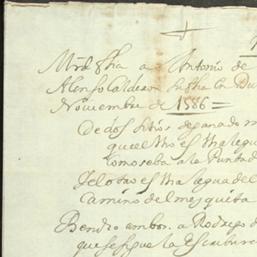 Mrd fha a Antonio de
Alonso Calderon fha en Du
Noviembre de 1586=
De dos sitios de ganado m
que el uno es
como se ba a la Punta d
Y el otro es Una lagua del
Camino del mezquita
Bendio ambos a Rodrigo d
que se sigue la Escritura